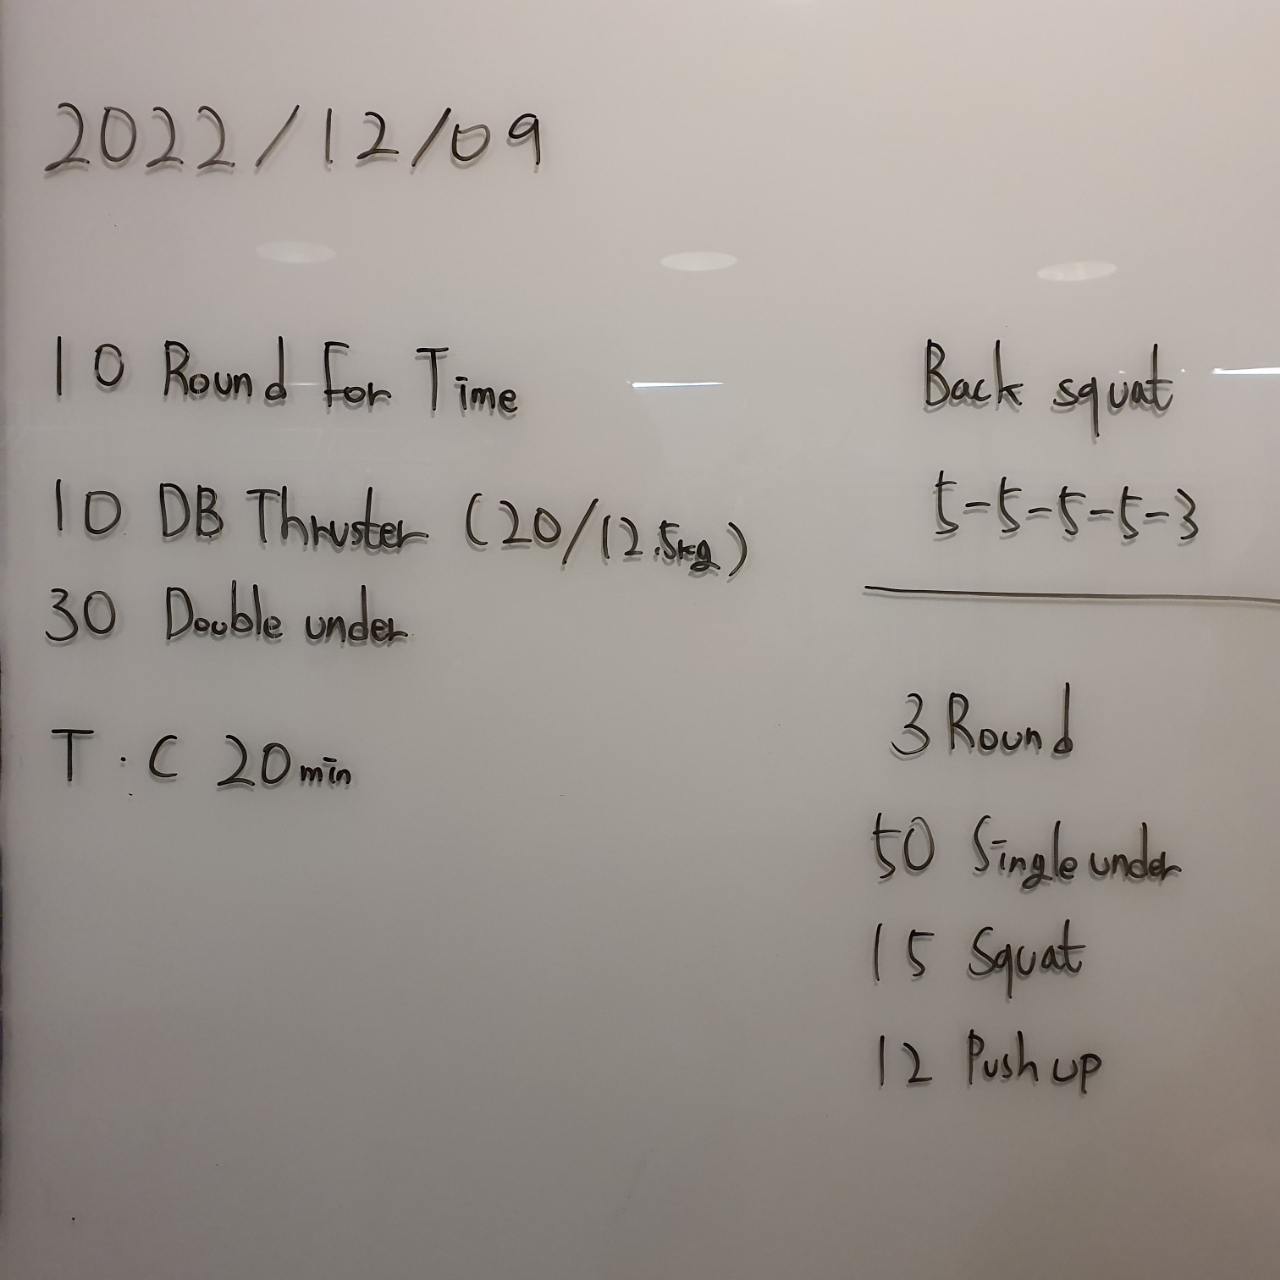 2022/12/09
10 Round For Time
10 DB Thruster (20/12.5kg)
30 Double under
T.C 20min
Back squat
5-5-5-5-3
3 Round
50 Single under
15 Squat
12 Push up